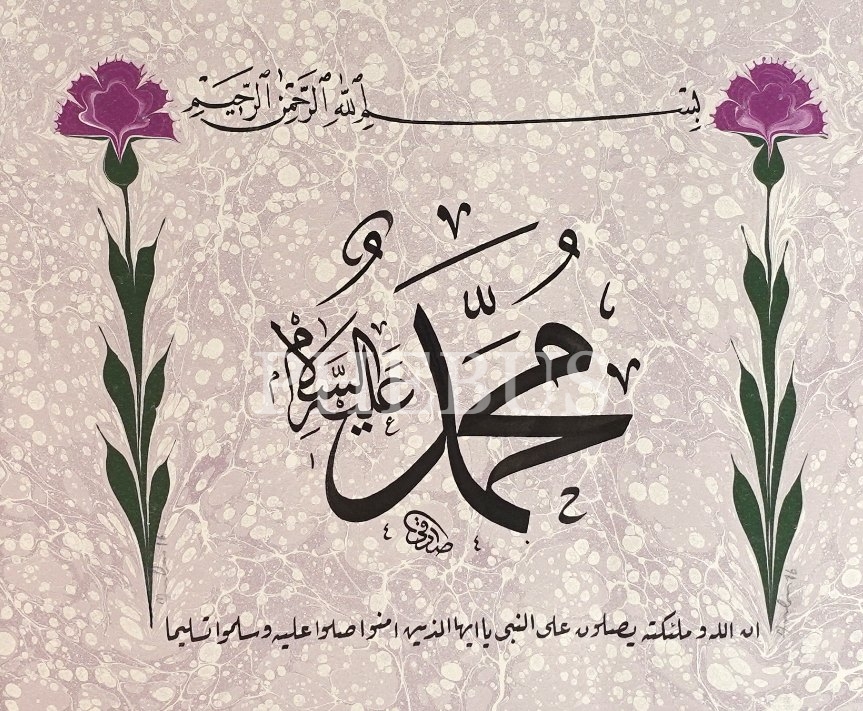 بِسْمِ اللهِ الرَّحْمٰنِ الرَّحِيْمِ
مُحَمَّد
عَلَيْهِ السَّلَام
PHEBUS
ان الله و ملئكته يصلون على النبى يا ايها الذين امنوا صلوا عليه و سلموا تسليما